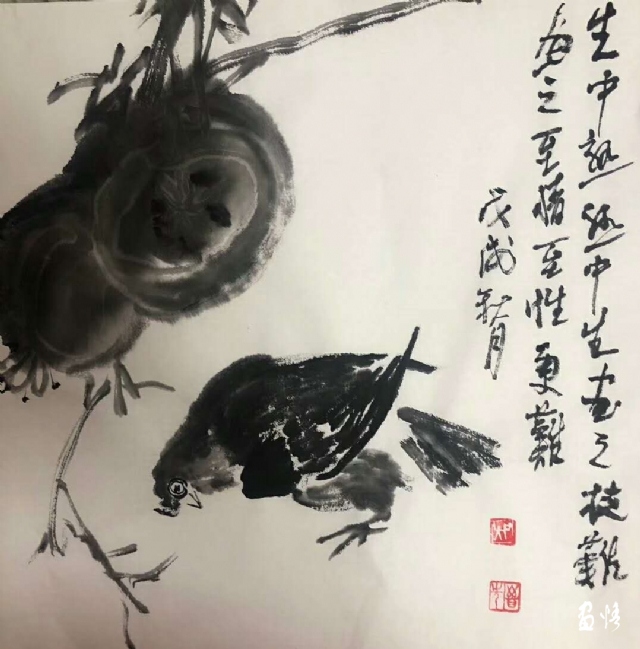 生中熟熟中生画之技難
画之至情至性更難
戊戌秋月